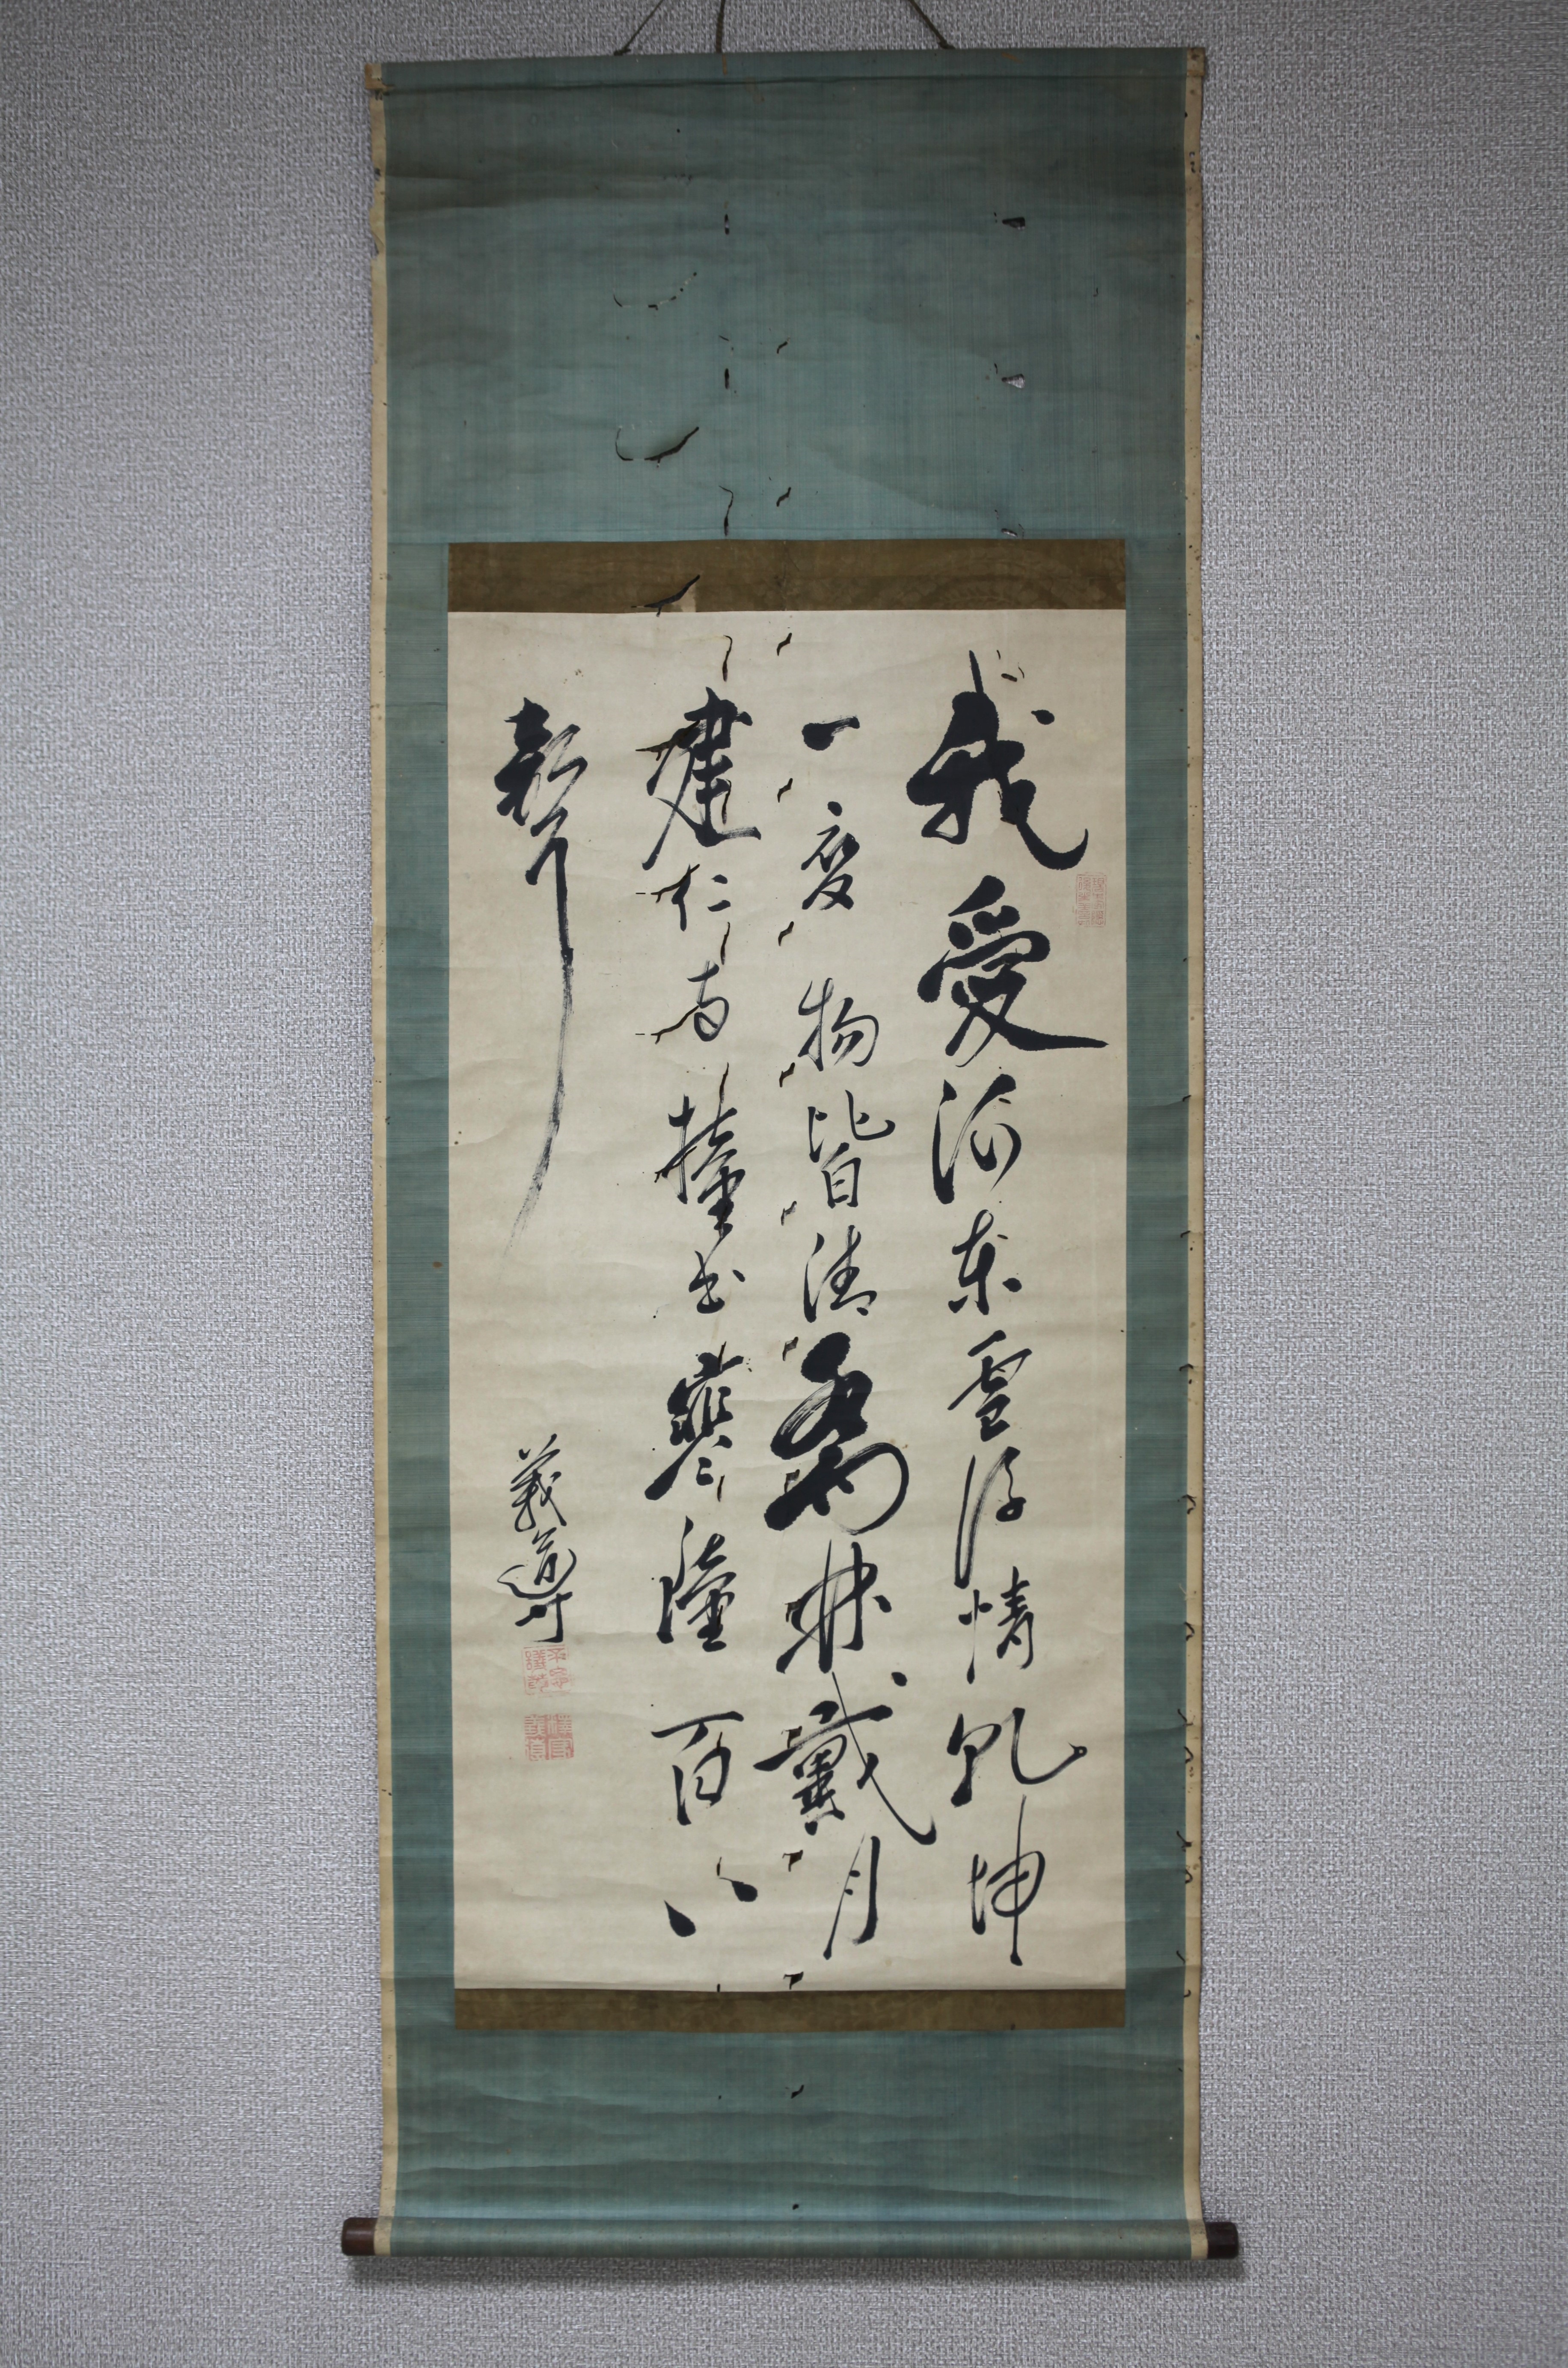 我愛河東雪後情乾坤
一変物皆清喬林戴月
建仁寺撞出寒鐘百八
聲
義導